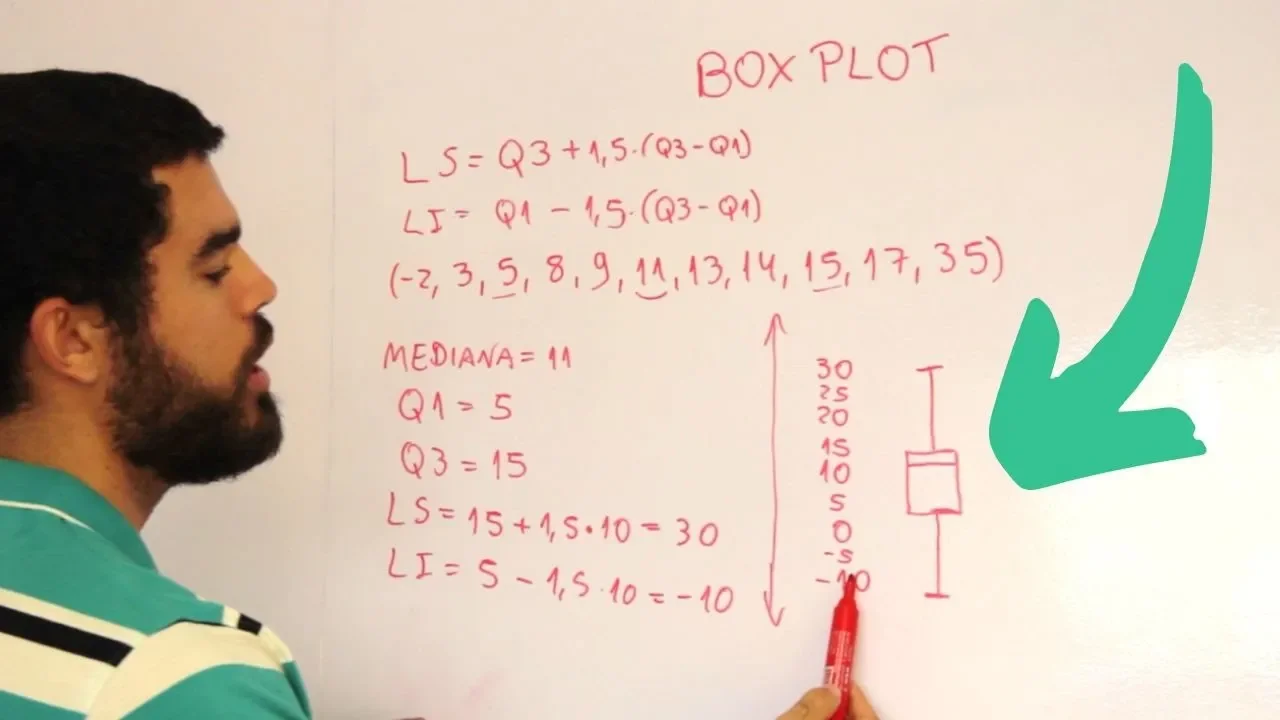 BOX PLOT
LS = Q3 + 1,5·(Q3-Q1)
LI = Q1 - 1,5·(Q3-Q1)
(-2, 3, 5, 8, 9, 11, 13, 14, 15, 17, 35)
MEDIANA = 11
Q1 = 5
Q3 = 15
LS = 15 + 1,5·10 = 30
LI = 5 - 1,5·10 = -10
30
25
20
15
10
5
0
-5
-10